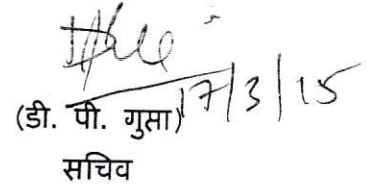 17/3/15
(डी. पी. गुप्ता)
सचिव